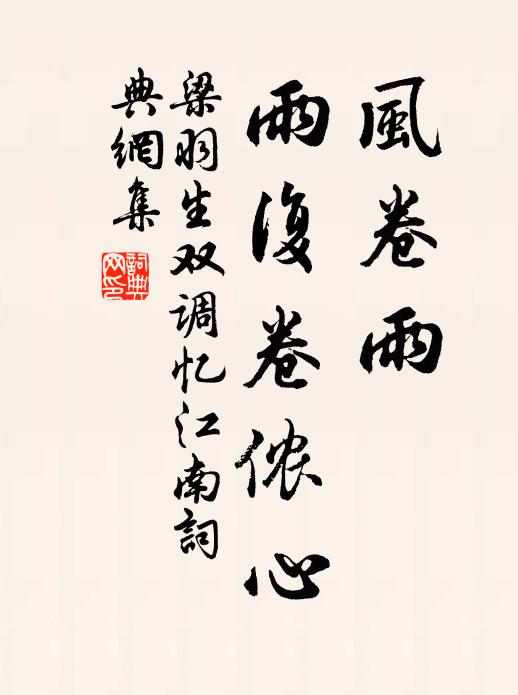 風卷雨
雨復卷侬心
梁羽生双调忆江南詞
典網集
詞典网印